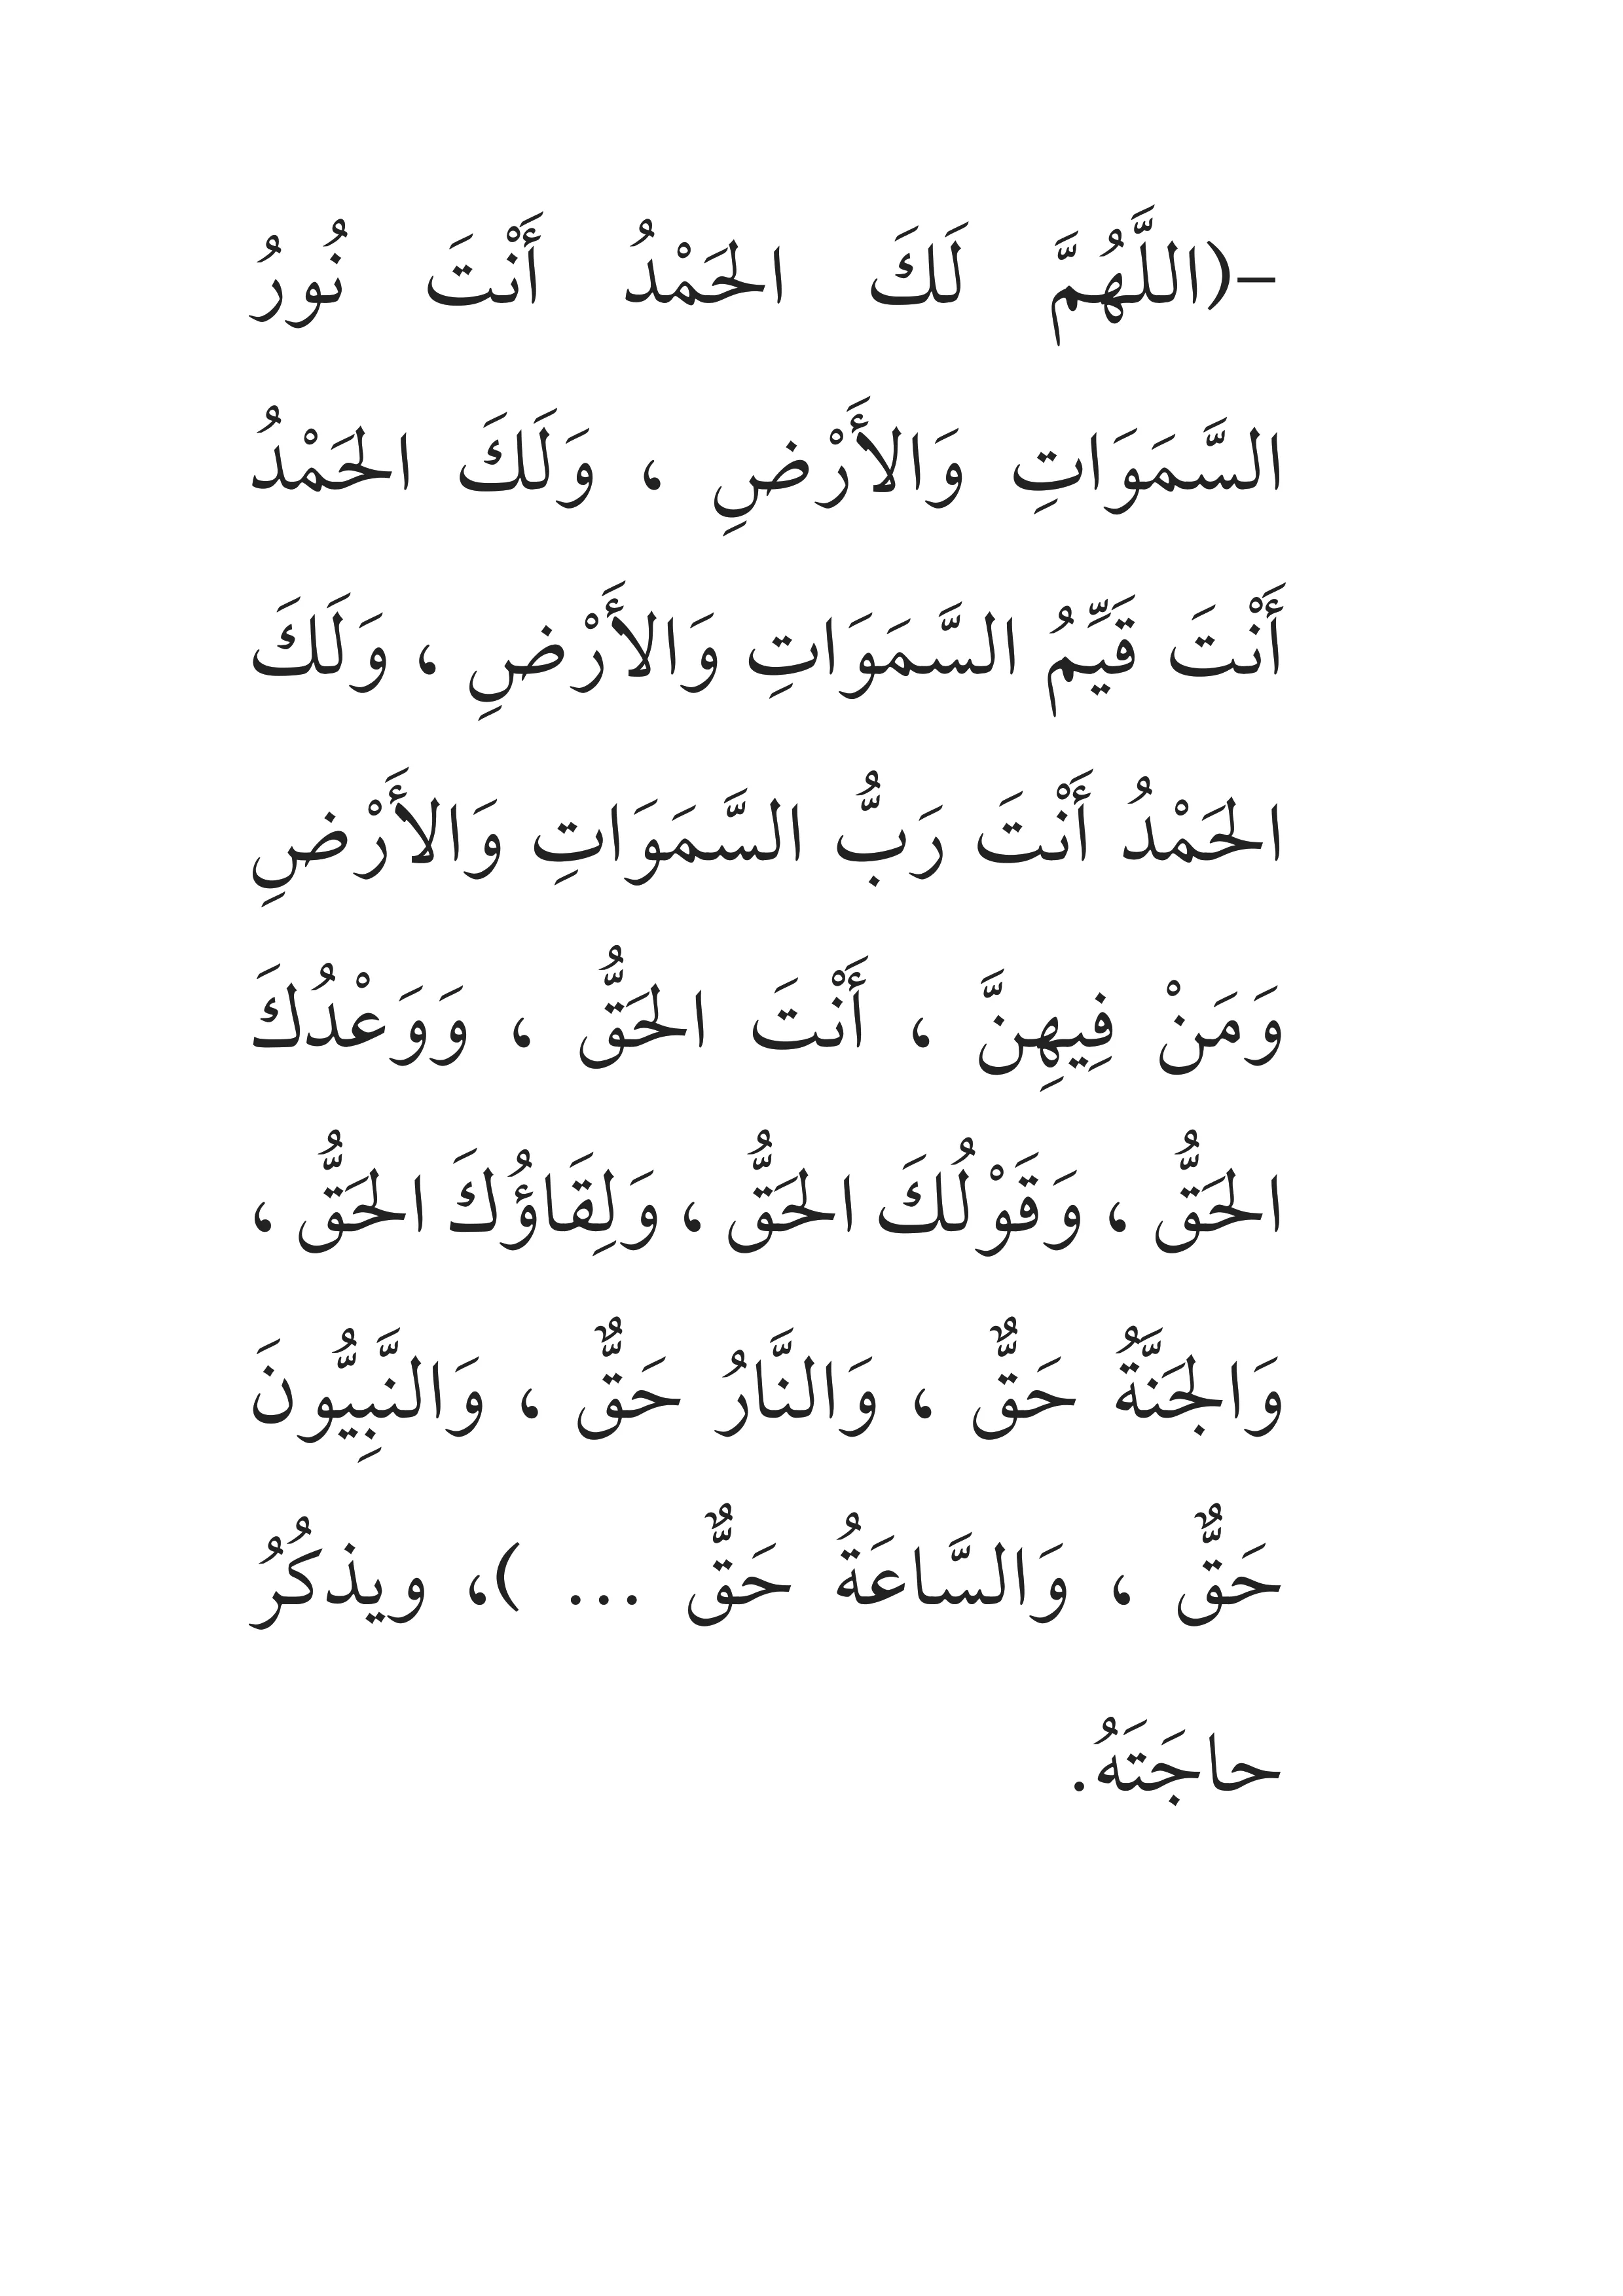 –(اللَّهُمَّ لَكَ الحَمْدُ أَنْتَ نُورُ
السَّمَوَاتِ وَالأَرْضِ ، وَلَكَ الحَمْدُ
أَنْتَ قَيِّمُ السَّمَوَاتِ وَالأَرْضِ ، وَلَكَ
الحَمْدُ أَنْتَ رَبُّ السَّمَوَاتِ وَالأَرْضِ
وَمَنْ فِيهِنَّ ، أَنْتَ الحَقُّ ، وَوَعْدُكَ
الحَقُّ ، وَقَوْلُكَ الحَقُّ ، وَلِقَاؤُكَ الحَقُّ ،
وَالجَنَّةُ حَقٌّ ، وَالنَّارُ حَقٌّ ، وَالنَّبِيُّونَ
حَقٌّ ، وَالسَّاعَةُ حَقٌّ ... )، ويذكُرُ
حاجَتَهُ.